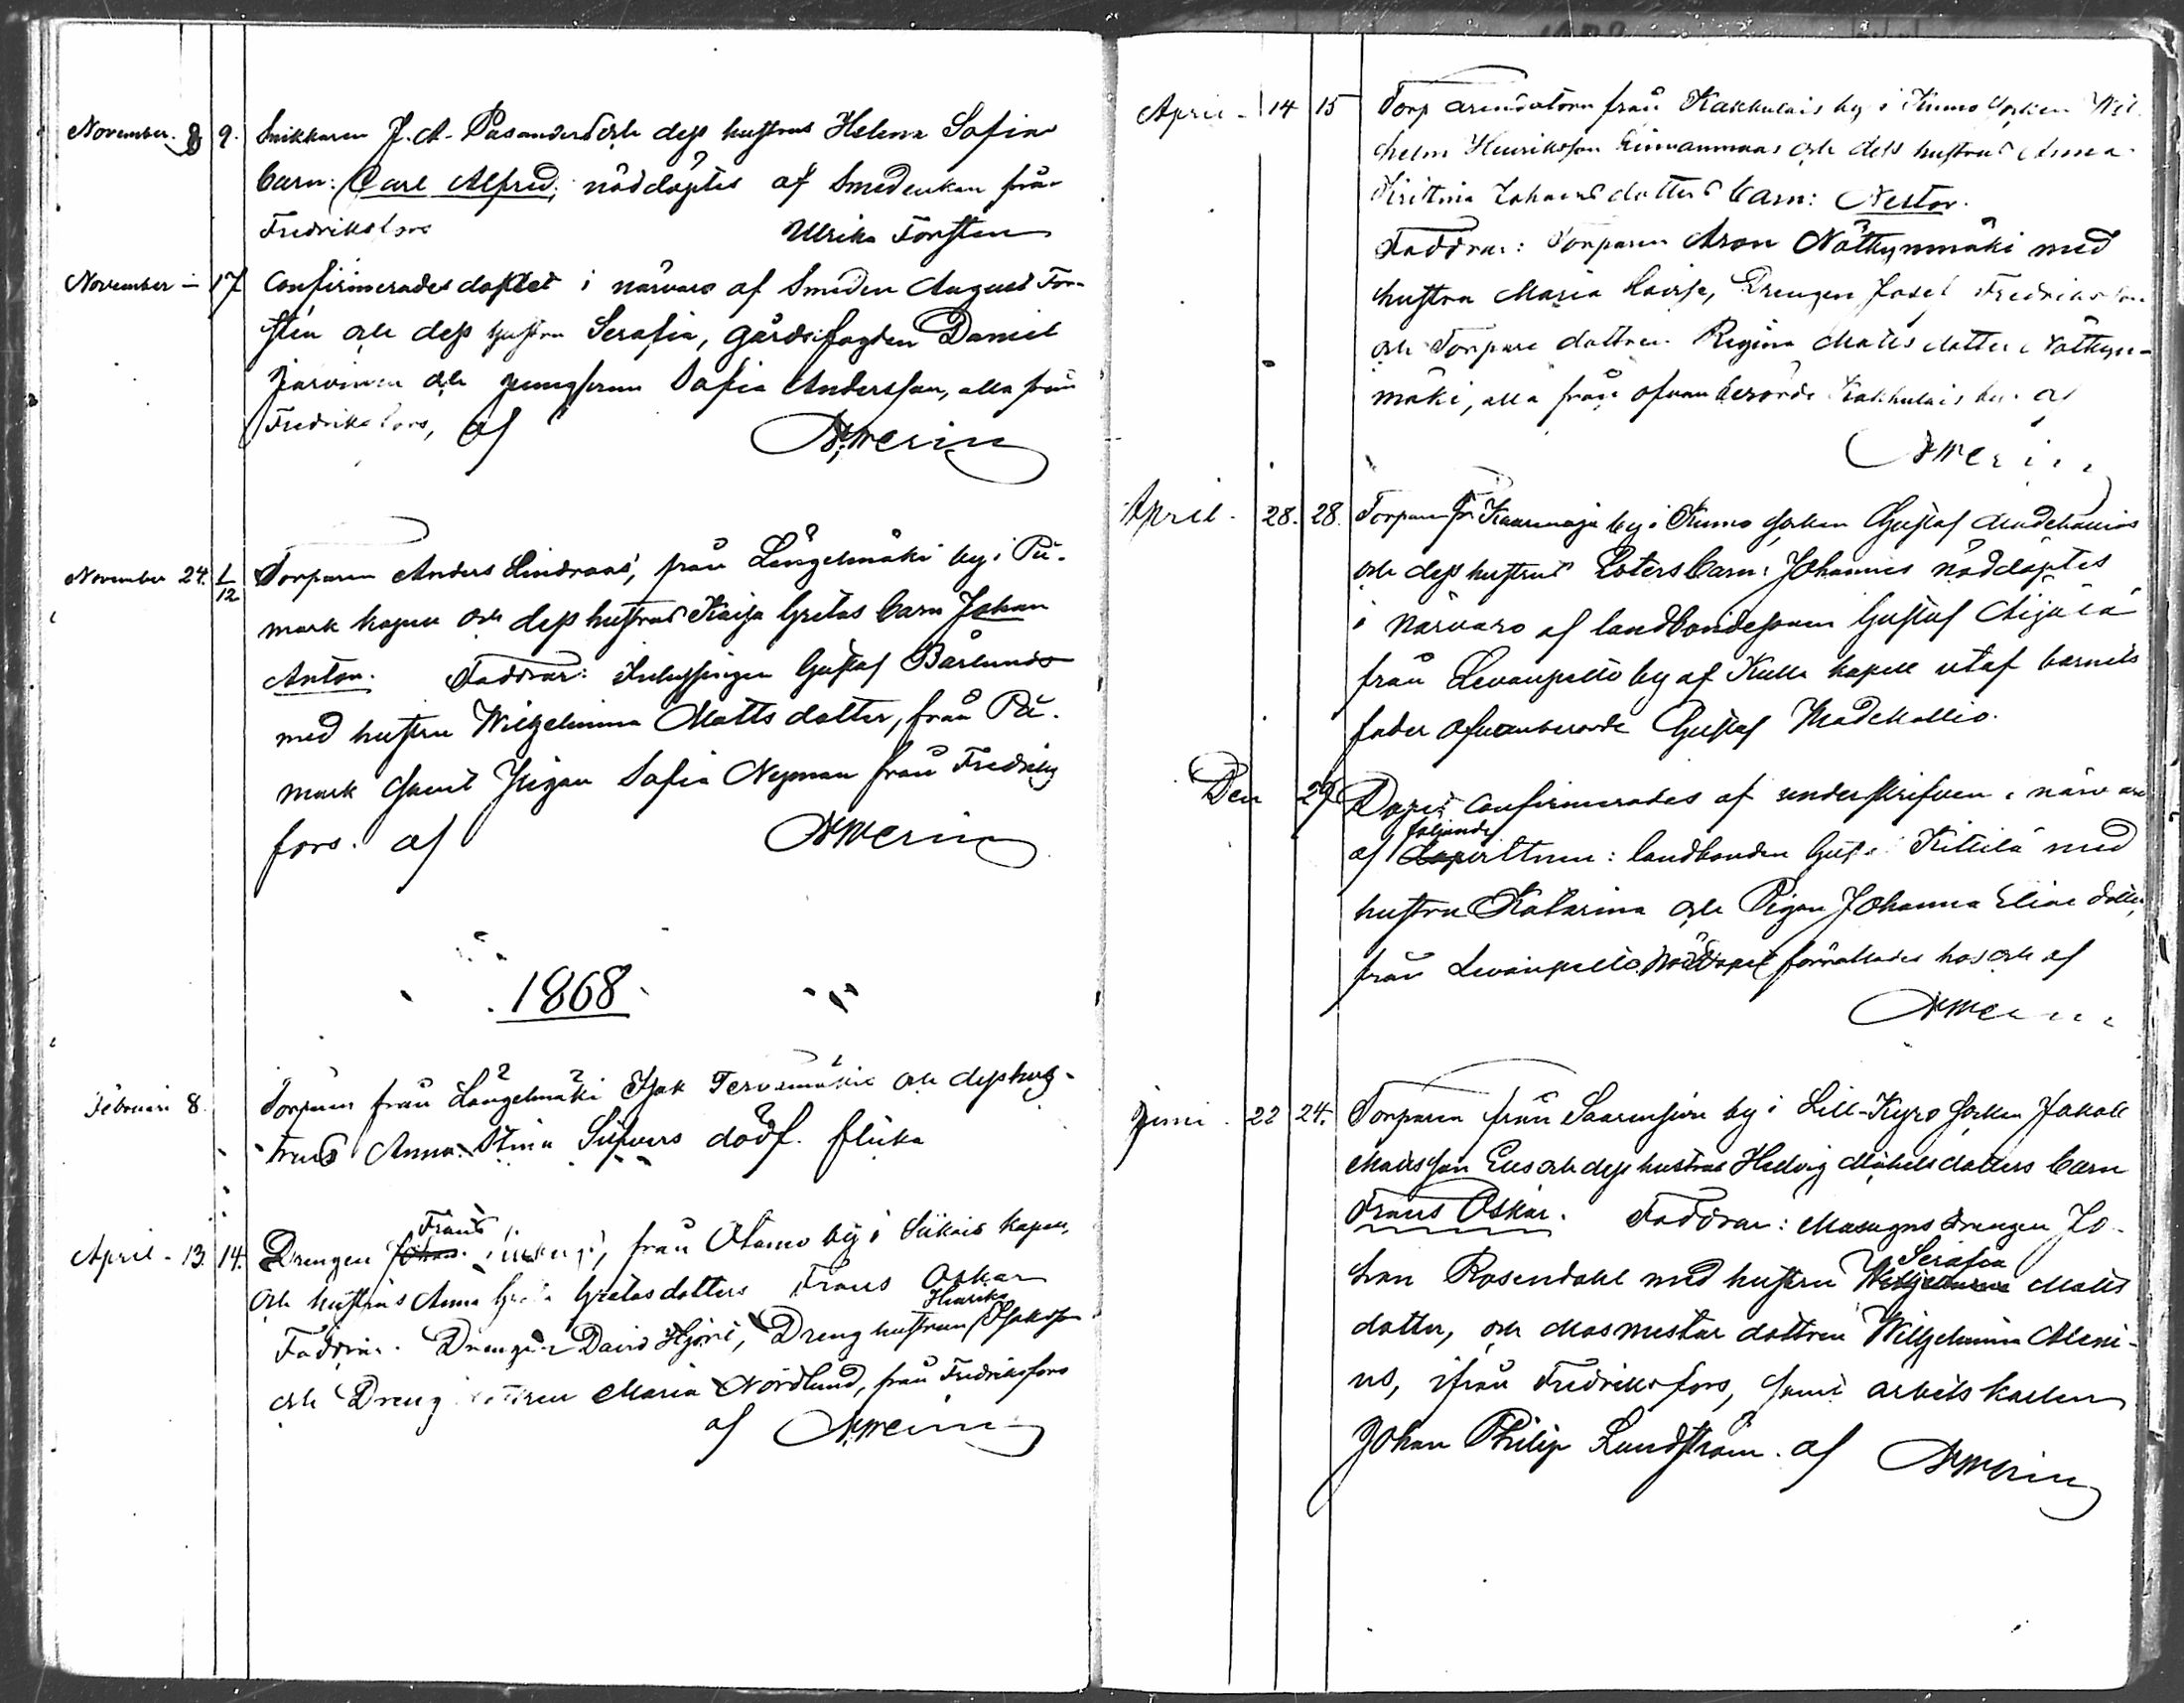 November. 8 9. Snikkaren J. A. Pasanders och dess hustrus Helena Sofias
barn: Carl Alfred, nöddöptes af Smedenkan från
Fredriksfors Ulrika Forsten
November – 17 Confirmerades dopet i närvaro af Smeden August For-
stén och dess hustru Serafia, gårdsfogden Daniel
Järvinen och jungfrun Sofia Andersson, alla från
Fredriksfors, af
November 24. 1/12 Torparen Anders Lindroos, från Längelmäki by i På-
mark kapell och dess hustrus Kaisa Gretas barn Johan
Anton. Faddrar: Inhysingen Gustaf Bärlund
med hustru Wilhelmina Mattsdotter, från På-
mark samt Pigan Sofia Nyman från Fredriks
fors. af
1868
Februari 8. Torparen från Längelmäki Isak Tervamäki och dess hus-
trus Anna Stina Sifvers dödf. flicka
April – 13. 14. Drengen Frans från Otamo by i Siikais kapell,
och hustrus Anna Gretasdotters Frans Oskar
Henrika
Faddrar. Drengen David Hjort, Dreng hustrun Isaksson
och Dreng Maria Nordlund, från Fredriksfors
af
April – 14 15 Torp arendatorn från Kakkulais by i Kumo socken Wil
helm Henriksson och dess hustrus Anna
Kristina Johansdotters barn: Nestor.
Faddrar: Torparen Aron Nätkynmäki med
hustru Maria Lovisa, Drengen Josef Fredriksson
och Torpare dottren Regina Mattsdotter Nätkyn-
mäki, alla från ofvanberörde Kakkulais by. af
April – 28. 28. Torparen fr. Kaarenoja by i Kumo socken Gustaf Madekallios
och dess hustrus Esters barn: Johannes nöddöptes
i närvaro af landbondesonen Gustaf Äijälä
från Levanpelto by af Kulla kapell utaf barnets
fader ofvanberörde Gustaf Madekallio.
Den 29 Dopet confirmerades af underskrifven i närvaro
följande
af vittnen: landbonden Gust. Kittilä med
hustru Katarina och Pigan Johanna Elias dotter,
från Levanpelto. Nöddopet förrättades hos och af
Juni – 22 24. Torparen från Saarensivu by i Lill-Kyro socken Jakob
Mattsson och dess hustrus Hedvig Michelsdotters barn
Frans Oskar. Faddrar: Masugns drengen Jo-
Serafia
han Rosendahl med hustru Matts
dotter, och Masmästar dottren Wilhelmina Aleni-
us, ifrån Fredriksfors, samt arbetskarlen
Johan Philip Lundström. af